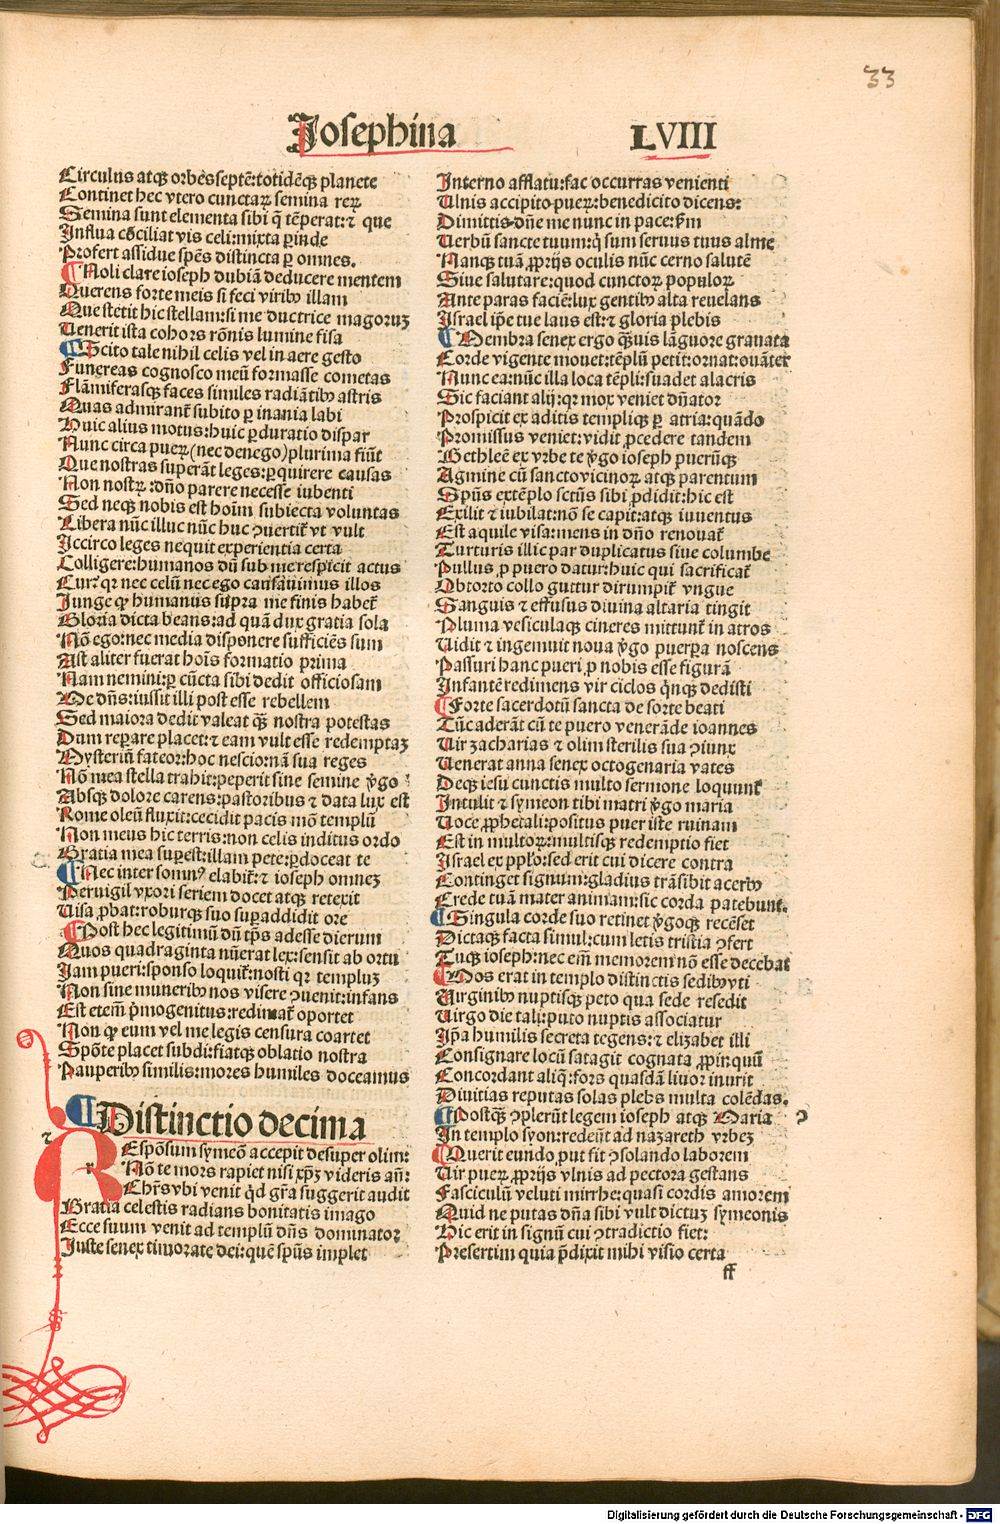 33
Josephina LVIII
Circulus atqꝫ orbes septē: totidēqꝫ planete
Continet hec vtero cunctaꝝ semina reꝝ
Semina sunt elementa sibi q̄ tēperat: ⁊ que
Influa cōciliat vis celi: mixta ꝑinde
Profert assidue spēs distincta ꝑ omnes.
¶ Noli clare ioseph dubiā deducere mentem
Querens forte meis si feci viribꝰ illam
Que stetit hic stellam: si me ductrice magoruꝫ
Venerit ista cohors rōnis lumine fisa
¶ Scito tale nihil celis vel in aere gesto
Fungreas cognosco meū formasse cometas
Flāmiferasqꝫ faces similes radiātibꝰ astris
Quas admirant᷑ subito ꝑ inania labi
Huic alius motus: huic ꝑduratio dispar
Nunc circa pueꝝ (nec denego) plurima fiūt
Que nostras superāt leges: ꝑquirere causas
Non nostꝝ: dn̄o parere necesse iubenti
Sed neqꝫ nobis est hoīm subiecta voluntas
Libera nūc illuc nūc huc ꝯuertit᷑ vt vult
Iccirco leges nequit experientia certa
Colligere: humanos dū sub me respicit actus
Cur? qꝛ nec celū nec ego causauimus illos
Junge ꝙ humanus supra me finis habet᷑
Gloria dicta beans: ad quā dux gratia sola
Nō ego: nec media disponere sufficiēs sum
Ast aliter fuerat hoīs formatio prima
Nam nemini: ꝑ cūcta sibi dedit officiosam
Me dn̄s: iussit illi post esse rebellem
Sed maiora dedit valeat qꝫ̄ nostra potestas
Dum reꝑare placet: ⁊ eam vult esse redemptaꝫ
Mysteriū fateor: hoc nescio: nā sua reges
Nō mea stella trahit: peperit sine semine v̓go
Absqꝫ dolore carens: pastoribus ⁊ data lux est
Rome oleū fluxit: cecidit pacis mō templū
Non meus hic terris: non celis inditus ordo
Gratia mea suꝑest: illam pete: ꝑdoceat te
¶ Nec inter somnꝰ elabit᷑: ⁊ ioseph omneꝫ
Peruigil vxori seriem docet atqꝫ retexit
Visa ꝓbat: roburqꝫ suo suꝑaddidit ore
¶ Post hec legitimū dū tp̄s adesse dierum
Quos quadraginta nūerat lex: sensit ab ortu
Jam pueri: sponso loquit᷑: nosti qꝛ templuꝫ
Non sine muneribꝰ nos visere ꝯuenit: infans
Est etem̄ p̓mogenitus: redimat᷑ oportet
Non ꝙ eum vel me legis censura coartet
Spōte placet subdi: fiatqꝫ oblatio nostra
Pauperibꝰ similis: mores humiles doceamus
¶ Distinctio decima
REspōsum symeō accepit desuper olim:
Nō te mors rapiet nisi xp̄ꝫ videris an̄:
Ehr̄s vbi venit q̓d gr̄a suggerit audit
Gratia celestis radians bonitatis imago
Ecce suum venit ad templū dn̄s dominator
Juste senex timorate dei: quē sp̄us implet
Interno afflatu: fac occurras venienti
Ulnis accipito pueꝝ: benedicito dicens:
Dimittis dn̄e me nunc in pace: ẜm
Uerbū sancte tuum: q̓ sum seruus tuus alme
Nanqꝫ tuā ꝓprijs oculis nūc cerno salutē
Siue salutare: quod cunctoꝝ populoꝝ
Ante paras faciē: lux gentibꝰ alta reuelans
Israel ip̄e tue laus est: ⁊ gloria plebis
¶ Membra senex ergo q̄uis lāguore grauata
Corde vigente mouet: tēplū petit: ornat: ouāter
Nunc ea: nūc illa loca tēpli: suadet alacris
Sic faciant alij: qꝛ mox veniet dn̄ator
Prospicit ex aditis templiqꝫ ꝑ atria: quādo
Promissus veniet: vidit ꝓcedere tandem
Bethleē ex vrbe te v̓go ioseph puerūqꝫ
Agmine cū sancto vicinoꝝ atqꝫ parentum
Sp̄us extēplo sctūs sibi ꝓdidit: hic est
Exilit ⁊ iubilat: nō se capit: atqꝫ iuuentus
Est aquile visa: mens in dn̄o renouat᷑
Turturis illic par duplicatus siue columbe
Pullus, ꝓ puero datur: huic qui sacrificat᷑
Obtorto collo guttur dirumpit᷑ vngue
Sanguis ⁊ effusus diuina altaria tingit
Pluma vesiculaqꝫ cineres mittunt᷑ in atros
Vidit ⁊ ingemuit noua v̓go puerpa noscens
Passuri hanc pueri ꝓ nobis esse figurā
Infantē redimens vir ciclos q̓nqꝫ dedisti
¶ Forte sacerdotū sancta de sorte beati
Tūc aderāt cū te puero venerāde ioannes
Vir zacharias ⁊ olim sterilis sua ꝯiunx
Uenerat anna senex octogenaria vates
Deqꝫ iesu cunctis multo sermone loquunt᷑
Intulit ⁊ symeon tibi matri v̓go maria
Uoce ꝓphetali: positus puer iste ruinam
Est in multoꝝ: multisqꝫ redemptio fiet
Israel ex pplo: sed erit cui dicere contra
Continget signum: gladius trāsibit acerbꝰ
Crede tuā mater animam: sic corda patebunt.
¶ Singula corde suo retinet v̓goqꝫ recēset
Dictaqꝫ facta simul: cum letis tristia ꝯfert
Tuqꝫ ioseph: nec em̄ memorem nō esse decebat
¶ Mos erat in templo distinctis sedibꝰ vti
Uirginibꝰ nuptisqꝫ peto qua sede resedit
Uirgo die tali: puto nuptis associatur
Ip̄a humilis secreta tegens: ⁊ elizabet illi
Consignare locū satagit cognata ꝓpinquū
Concordant aliq̓: fors quasdā liuor inurit
Diuitias reputas solas plebs multa colēdas.
¶ Postqꝫ̄ ꝯplerūt legem ioseph atqꝫ Maria ꝯ
In templo syon: redeūt ad nazareth vrbeꝫ
¶ Querit eundo, put fit ꝯsolando laborem
Uir pueꝝ ꝓprijs vlnis ad pectora gestans
Fasciculū veluti mirrhe: quasi cordis amorem
Quid ne putas dn̄a sibi vult dictuꝫ symeonis
Hic erit in signū cui ꝯtradictio fiet:
Presertim quia p̄dixit mihi visio certa
ff
Digitalisierung gefördert durch die Deutsche Forschungsgemeinschaft - DFG